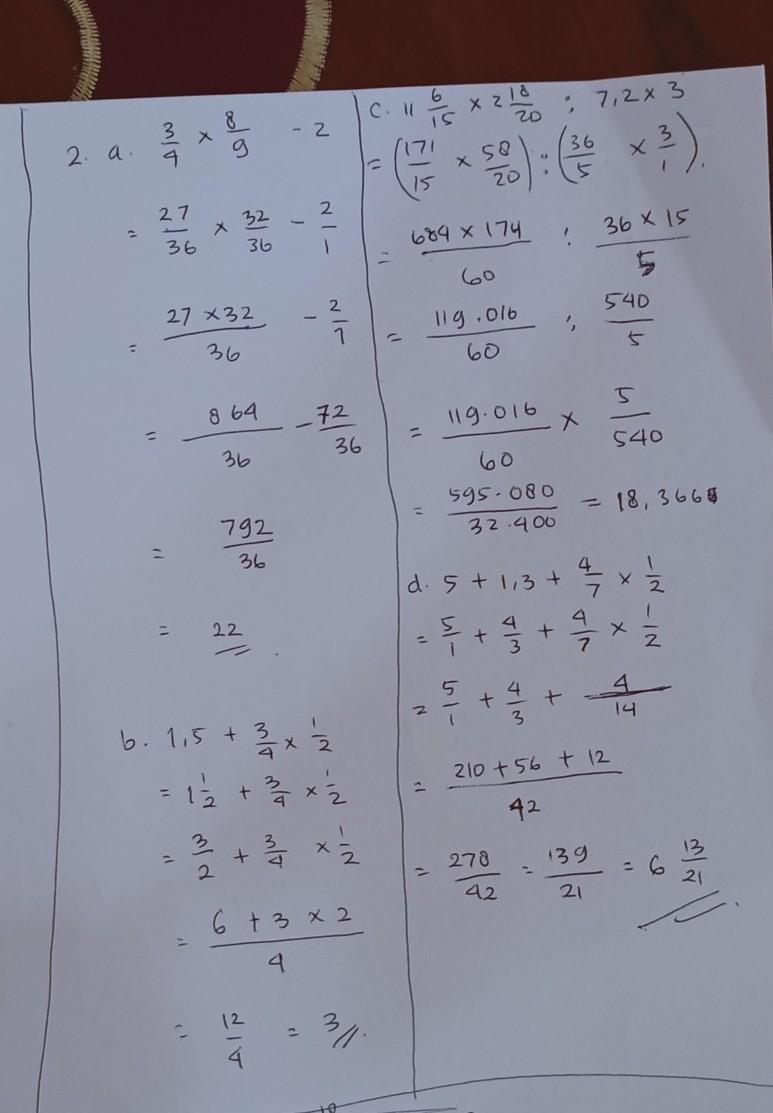 2. a. 3/4 × 8/9 - 2
= 27/36 × 32/36 - 2/1
= 27 × 32/36 - 2/1
= 864/36 - 72/36
= 792/36
= 22
b. 1,5 + 3/4 × 1/2
= 1 1/2 + 3/4 × 1/2
= 3/2 + 3/4 × 1/2
= 6 + 3 × 2/4
= 12/4 = 3 //.
c. 11 6/15 × 2 18/20 : 7,2 × 3
= (171/15 × 58/20) : (36/5 × 3/1).
= 684 × 174/60 : 36 × 15/5
= 119.016/60 : 540/5
= 119.016/60 × 5/540
= 595.080/32.400 = 18,366
d. 5 + 1,3 + 4/7 × 1/2
= 5/1 + 4/3 + 4/7 × 1/2
= 5/1 + 4/3 + 4/14
= 210 + 56 + 12/42
= 278/42 = 139/21 = 6 13/21